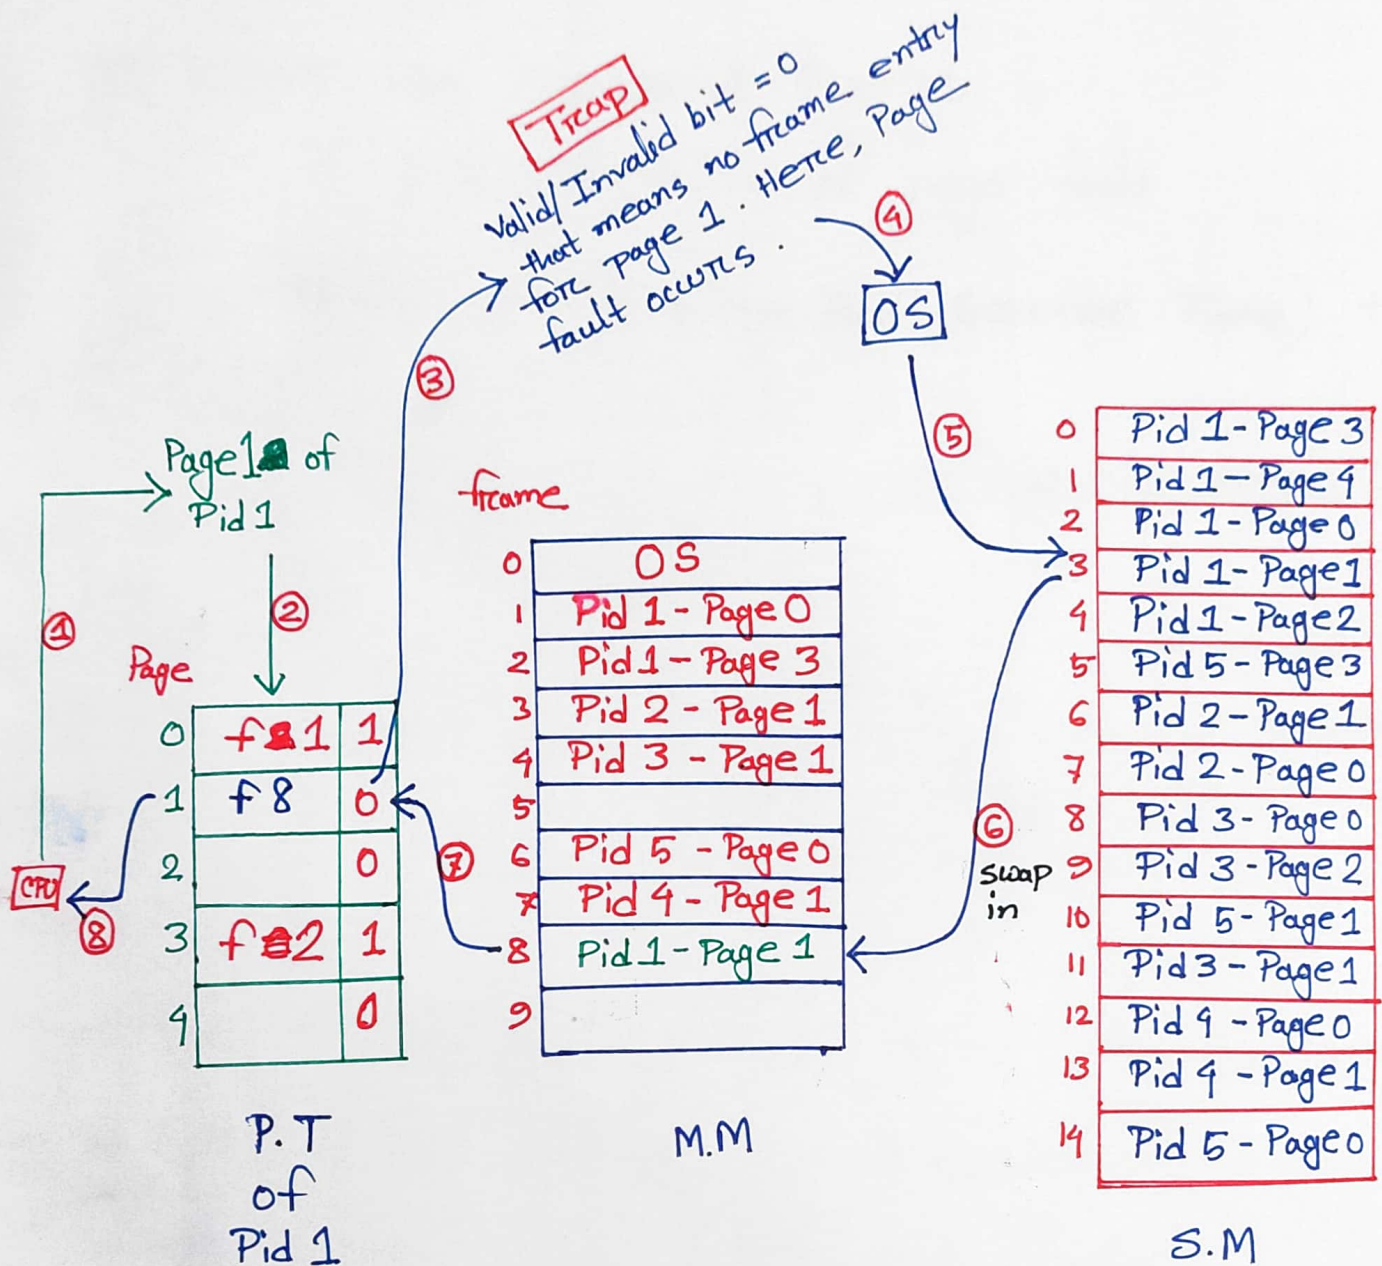 Trap
Valid/Invalid bit = 0
that means no frame entry
for page 1. Here, Page
fault occurs.
4
OS
3
5
Page 1 of
Pid 1
1
2
Page
0 f 1 1
1 f 8 0
2 0
3 f 2 1
4 0
CPU
8
7
P.T
of
Pid 1
frame
0 OS
1 Pid 1 - Page 0
2 Pid 1 - Page 3
3 Pid 2 - Page 1
4 Pid 3 - Page 1
5
6 Pid 5 - Page 0
7 Pid 4 - Page 1
8 Pid 1 - Page 1
9
M.M
6
swap
in
0 Pid 1 - Page 3
1 Pid 1 - Page 4
2 Pid 1 - Page 0
3 Pid 1 - Page 1
4 Pid 1 - Page 2
5 Pid 5 - Page 3
6 Pid 2 - Page 1
7 Pid 2 - Page 0
8 Pid 3 - Page 0
9 Pid 3 - Page 2
10 Pid 5 - Page 1
11 Pid 3 - Page 1
12 Pid 4 - Page 0
13 Pid 4 - Page 1
14 Pid 5 - Page 0
S.M